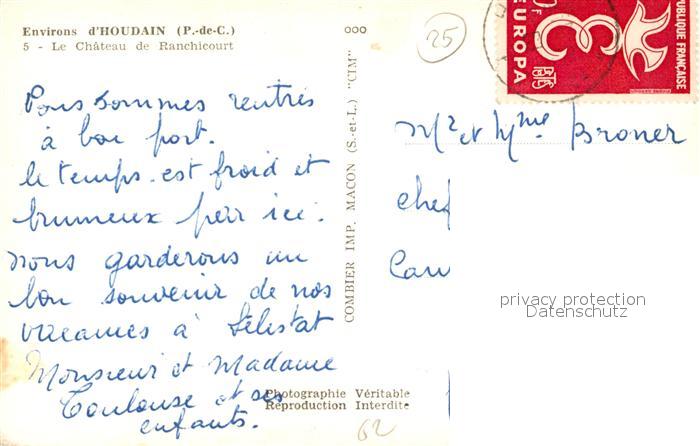 Environs d'HOUDAIN (P.-de-C.)
5 - Le Château de Ranchicourt
ooo
25
RÉPUBLIQUE FRANÇAISE
EUROPA
POSTES
Nous sommes rentrés
à bon port.
le temps est froid et
brumeux par ici.
nous garderons un
bon souvenir de nos
vacances à Sélestat
Monsieur et Madame
Toulouse et ses
enfants.
COMBIER IMP. MACON (S.-et-L.) "CIM"
Mr et Mme Broner
chef
Photographie Véritable
Reproduction Interdite
62
privacy protection
Datenschutz